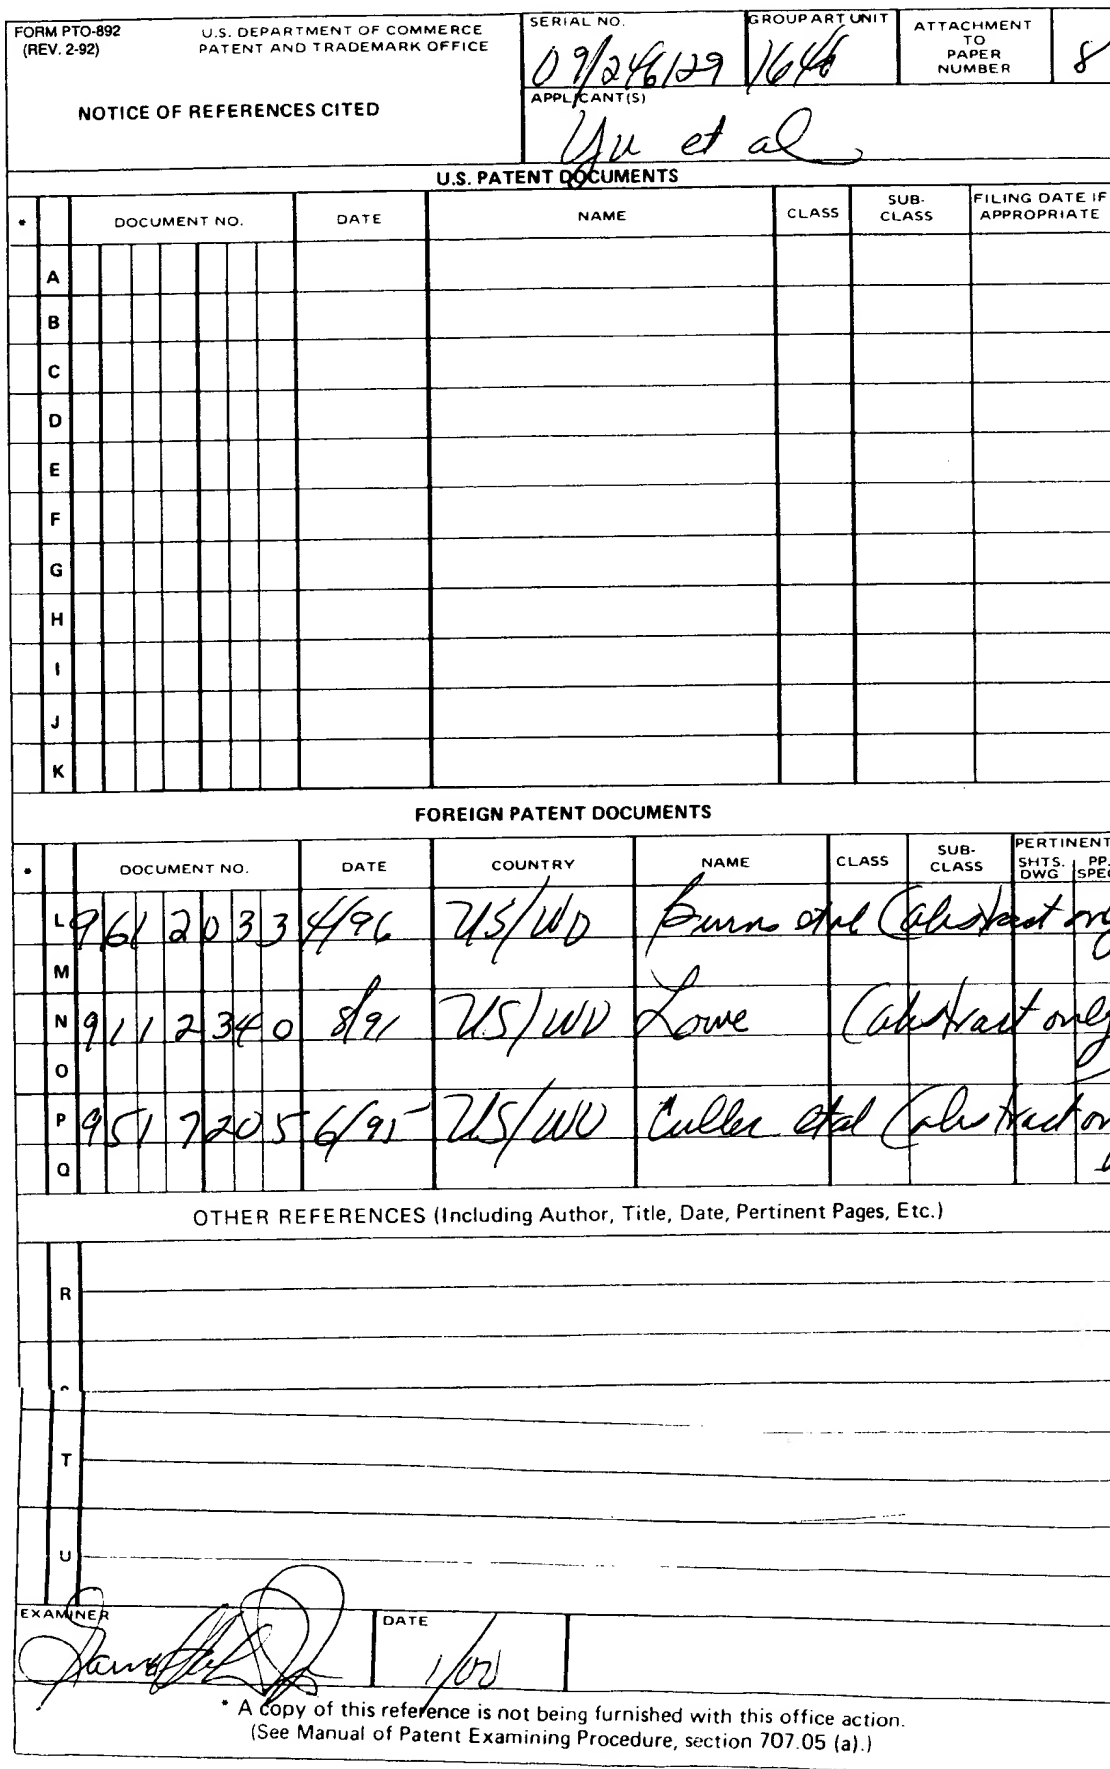 FORM PTO-892
(REV. 2-92)
U.S. DEPARTMENT OF COMMERCE
PATENT AND TRADEMARK OFFICE
NOTICE OF REFERENCES CITED
SERIAL NO.
09/246129
GROUP ART UNIT
1646
ATTACHMENT
TO
PAPER
NUMBER
8
APPLICANT(S)
Yu et al
U.S. PATENT DOCUMENTS
* DOCUMENT NO. DATE NAME CLASS SUB-CLASS FILING DATE IF APPROPRIATE
A
B
C
D
E
F
G
H
I
J
K
FOREIGN PATENT DOCUMENTS
* DOCUMENT NO. DATE COUNTRY NAME CLASS SUB-CLASS PERTINENT SHTS. DWG PP. SPEC
L 9612033 4/96 US/WO Burns et al (abstract only
M
N 9112340 8/91 US/WO Lowe (abstract only
O
P 9517205 6/95 US/WO Culler et al (abstract on
Q
OTHER REFERENCES (Including Author, Title, Date, Pertinent Pages, Etc.)
R
T
U
EXAMINER
DATE
1/00
* A copy of this reference is not being furnished with this office action.
(See Manual of Patent Examining Procedure, section 707.05 (a).)